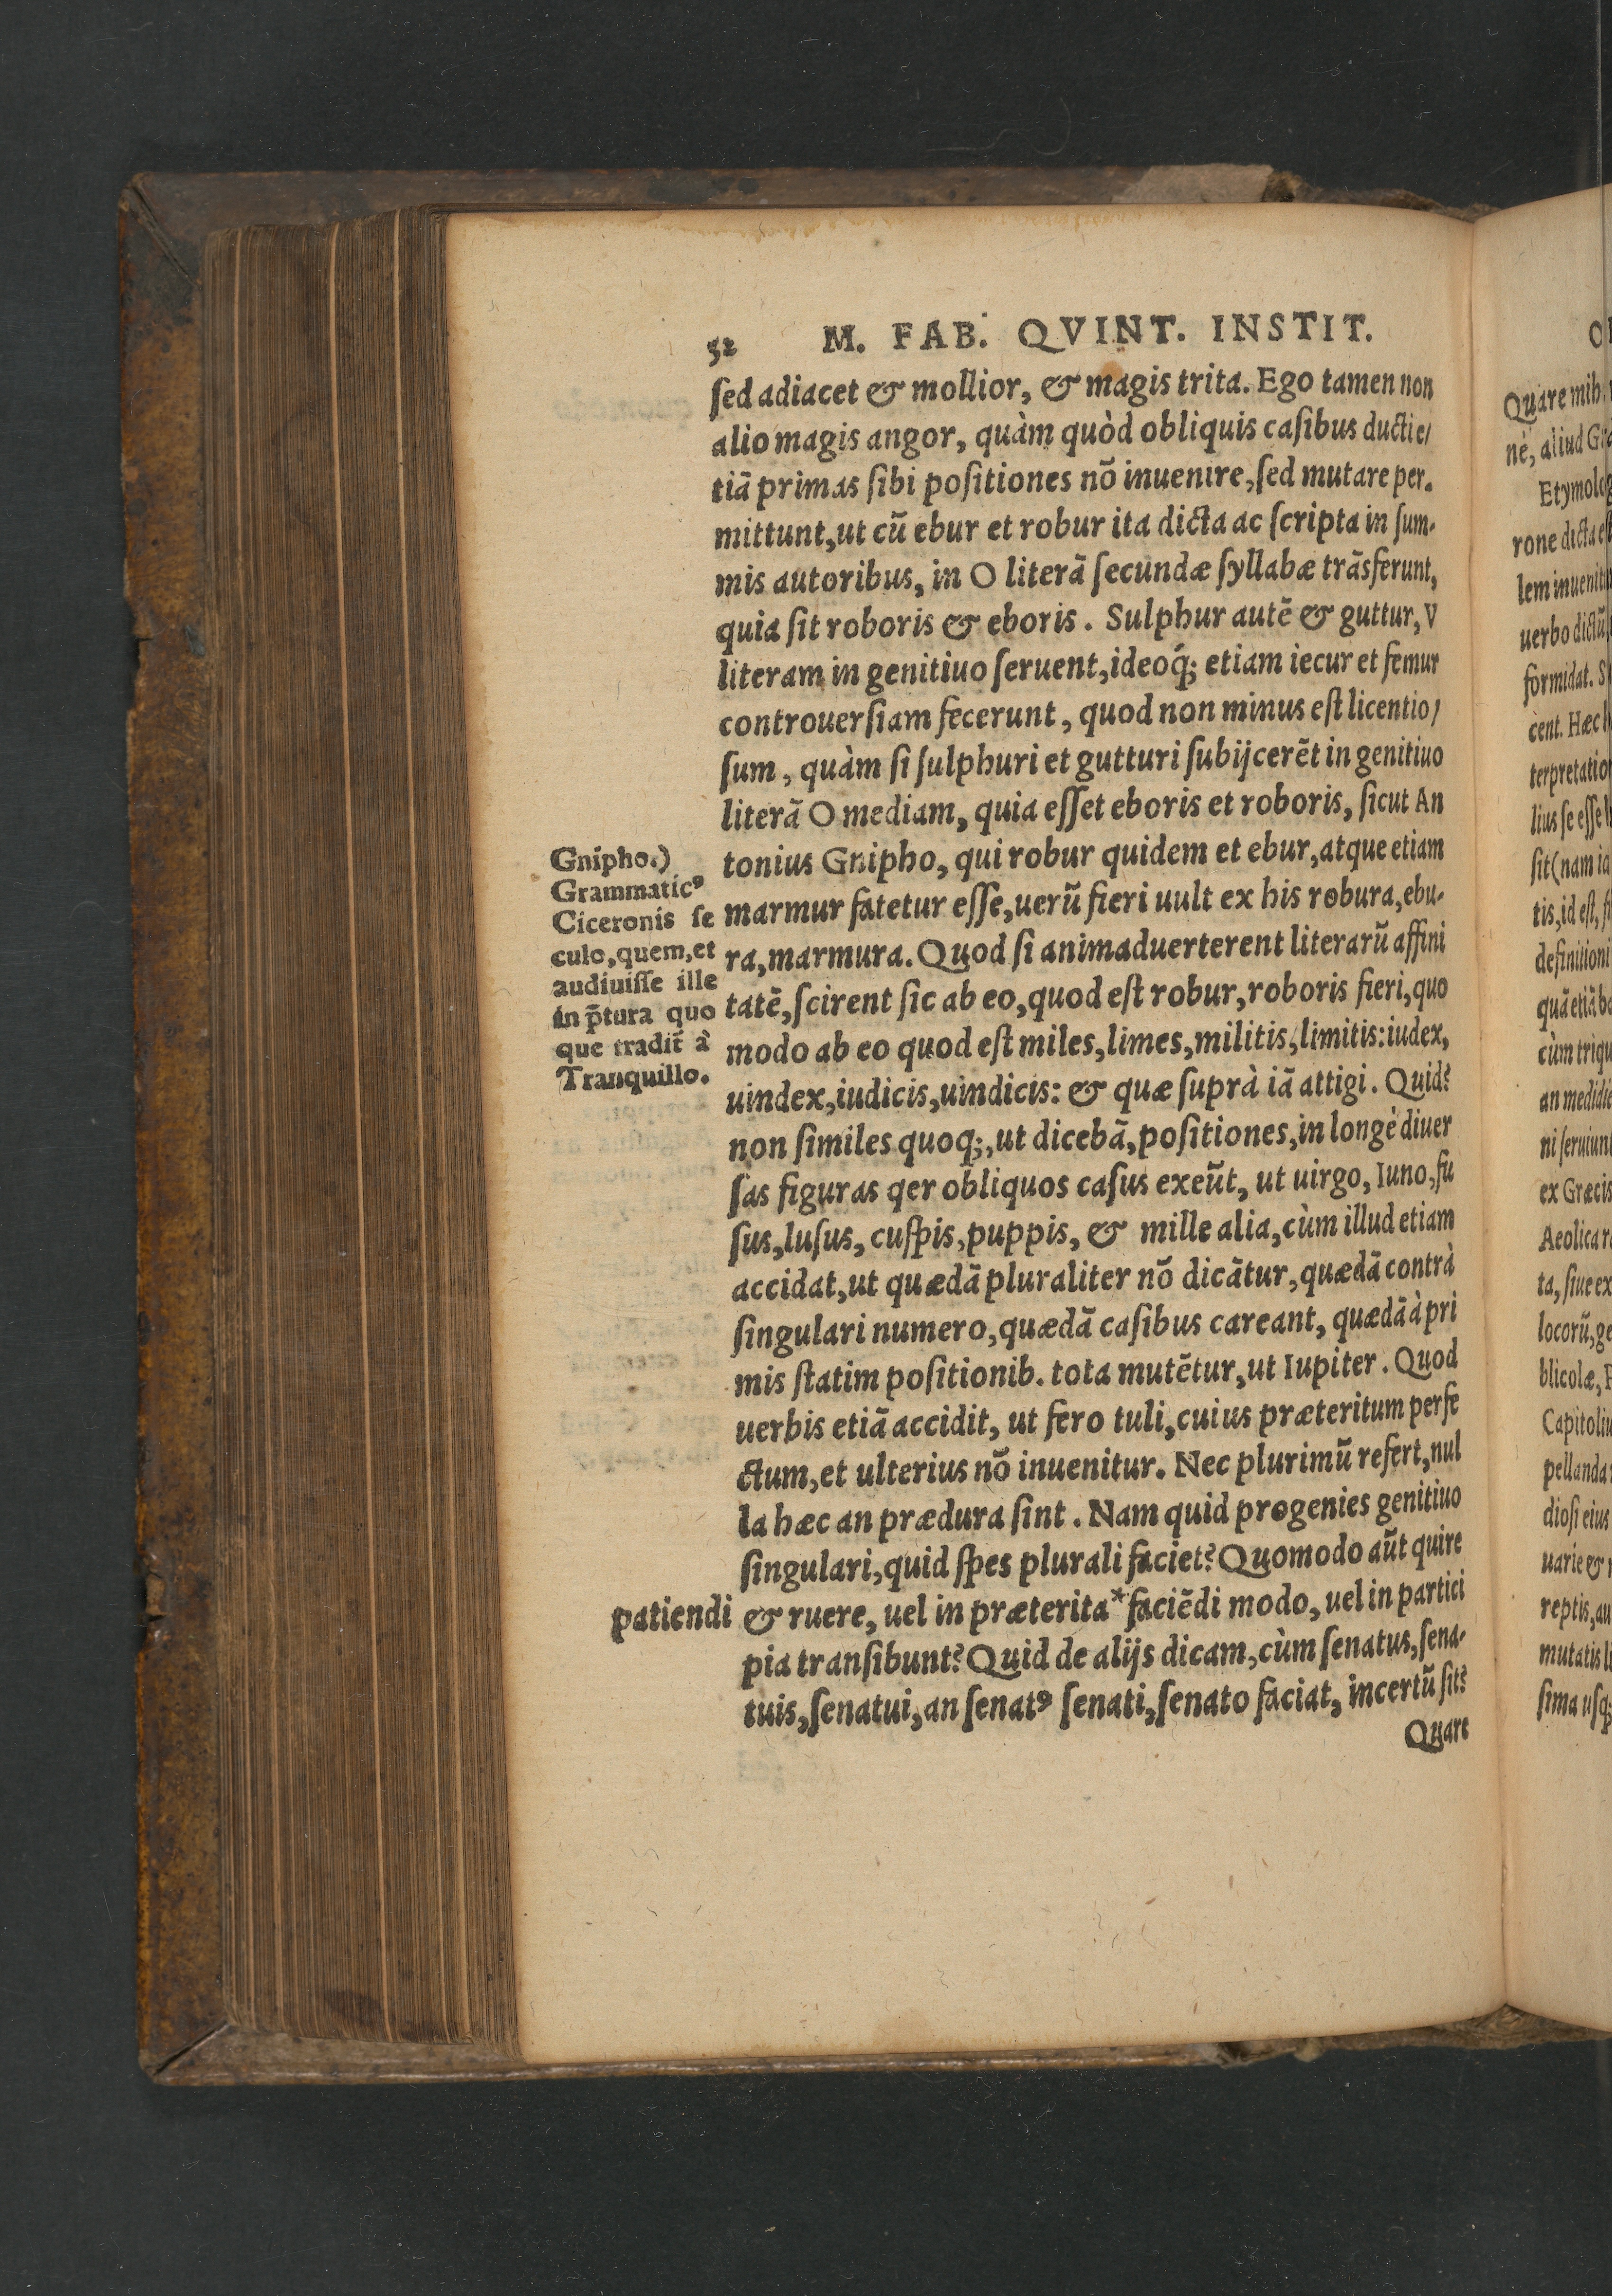 52 M. FAB. QVINT. INSTIT.
ſed adiacet & mollior, & magis trita. Ego tamen non
alio magis angor, quàm quòd obliquis caſibus ducti e/
tiā primas ſibi poſitiones nō inuenire, ſed mutare per.
mittunt, ut cū ebur et robur ita dicta ac ſcripta in ſum-
mis autoribus, in O literā ſecundæ ſyllabæ trāsferunt,
quia ſit roboris & eboris. Sulphur autē & guttur, V
literam in genitiuo ſeruent, ideoq́; etiam iecur et femur
controuerſiam fecerunt, quod non minus eſt licentio/
ſum, quàm ſi ſulphuri et gutturi ſubijcerēt in genitiuo
literā O mediam, quia eſſet eboris et roboris, ſicut An
tonius Gnipho, qui robur quidem et ebur, atque etiam
marmur fatetur eſſe, uerū fieri uult ex his robura, ebu-
ra, marmura. Quod ſi animaduerterent literarū affini
tatē, ſcirent ſic ab eo, quod eſt robur, roboris fieri, quo
modo ab eo quod eſt miles, limes, militis, limitis: iudex,
uindex, iudicis, uindicis: & quæ ſuprà iā attigi. Quid?
non ſimiles quoq;, ut dicebā, poſitiones, in longè diuer
ſas figuras qer obliquos caſus exeūt, ut uirgo, Iuno, fu
ſus, luſus, cuſpis, puppis, & mille alia, cùm illud etiam
accidat, ut quædā pluraliter nō dicātur, quædā contrà
ſingulari numero, quædā caſibus careant, quædā à pri
mis ſtatim poſitionib. tota mutētur, ut Iupiter. Quod
uerbis etiā accidit, ut fero tuli, cuius præteritum perfe
ctum, et ulterius nō inuenitur. Nec plurimū refert, nul
la hæc an prædura ſint. Nam quid progenies genitiuo
ſingulari, quid ſpes plurali faciet? Quomodo aūt quire
& ruere, uel in præterita* faciēdi modo, uel in partici
pia tranſibunt? Quid de alijs dicam, cùm ſenatus, ſena-
tuis, ſenatui, an ſenatꝰ ſenati, ſenato faciat, incertū ſit?
Quare
Gnipho.)
Grammaticꝰ
Ciceronis ſe
culo, quem, et
audiuiſſe ille
in p̄tura quo
que tradit̄ à
Tranquillo.
patiendi
Quare mih
nè, aliud
Etymolog
rone dicta eſt
lem inuenit
uerbo dictū
formidat.
cent. Hæc
terpretatio
lius ſe eſſe
ſit (nam
tis, id eſt,
definitioni
quā etiā
cùm
an
ni ſeruiunt
ex Græcis
Aeolica
ta, ſiue ex
locorū,
blicolæ,
Capitoliu
pellanda
dioſi eius
uarie &
reptis,
mutatis
ſima uſq;